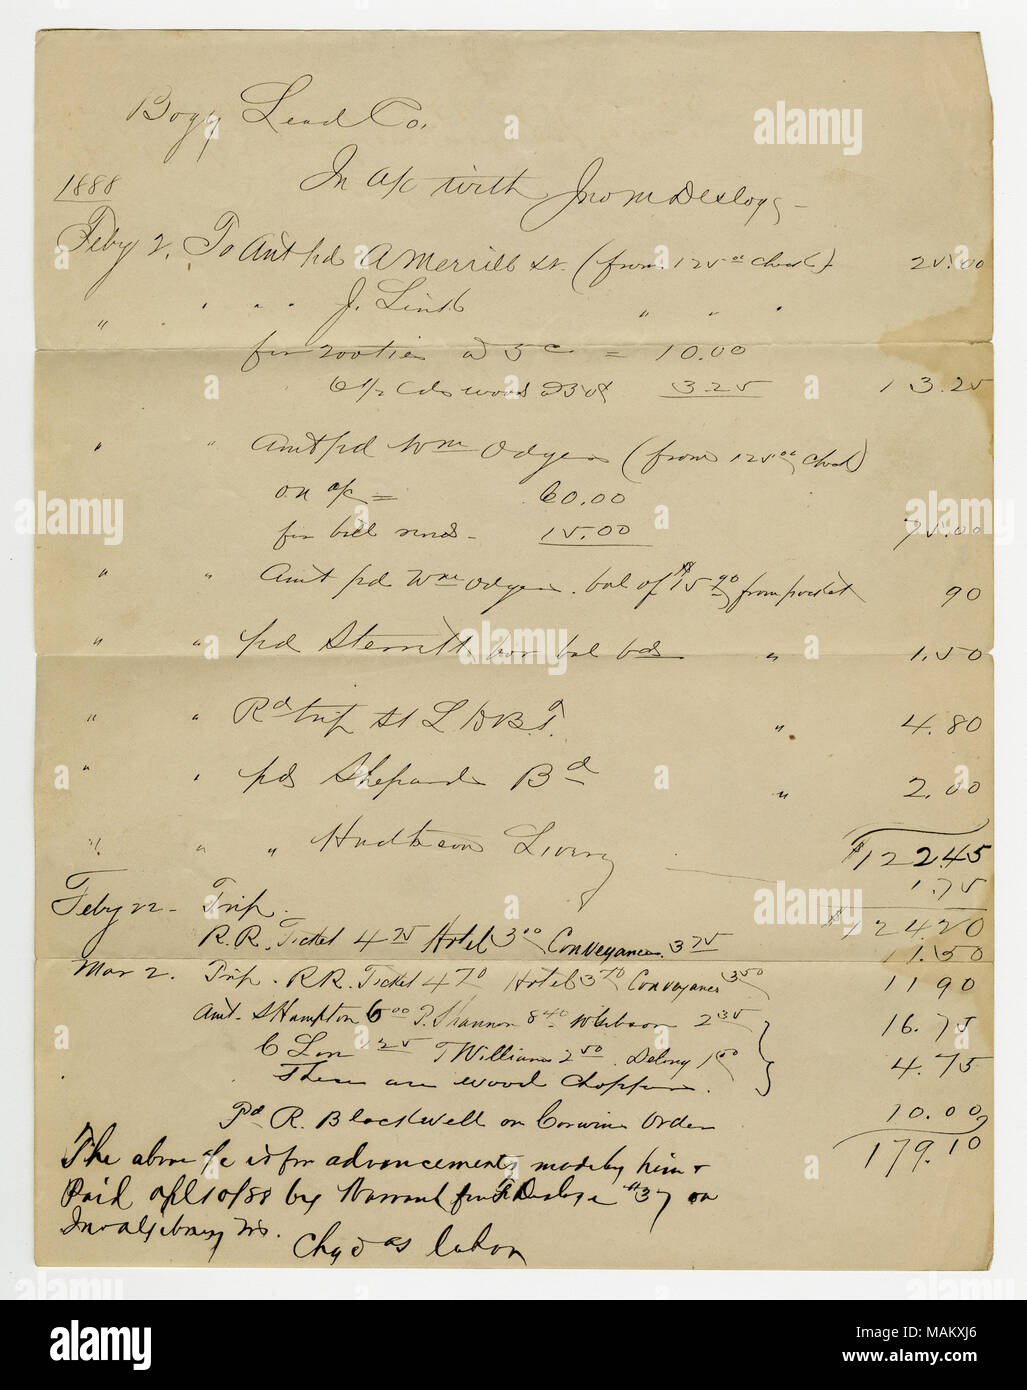 Bogy Lead Co.
In a/c with Jno M Desloge
1888
Feby 2. To Amt pd A Merrill St. (from 125 00 check) 25.00
" " " " J. Lind " " "
for 200 ties @ 5 c = 10.00
6 1/2 Cds wood @ 50¢ 3.25 13.25
" " Amt pd Wm Odger (from 125 00 check)
on a/c = 60.00
for bill rend - 15.00 75.00
" " Amt pd Wm Odger bal of $15 90 from pocket 90
" " pd Sterritt for bal bds " 1.50
" " Rd trip St L & B T. " 4.80
" " pd Shepard Bd " 2.00
$122.45
" " " Hudson Livery 1.75
Feby 22 - Trip. $124.20
R.R. Ticket 4 75 Hotel 3 00 Conveyance 3 75 11.50
Mar 2. Trip. R.R. Ticket 4 70 Hotel 3 70 Conveyance 3 50 11 90
Amt. S Hampton 6 00 P. Shannon 8 40 W Gibson 2 35 16.75
C Lon 1 25 T Williams 2 50 Delony 1 00 4.75
These are wood choppers.
Pd R. Blackwell on Corwin Order 10.00
179.10
The above a/c is for advancements made by him &
Paid Apl 10/88 by Warrant for F Desloge #37 on
Chgd as labor
alamy
a
alamy
Image ID: MAKXJ6
www.alamy.com